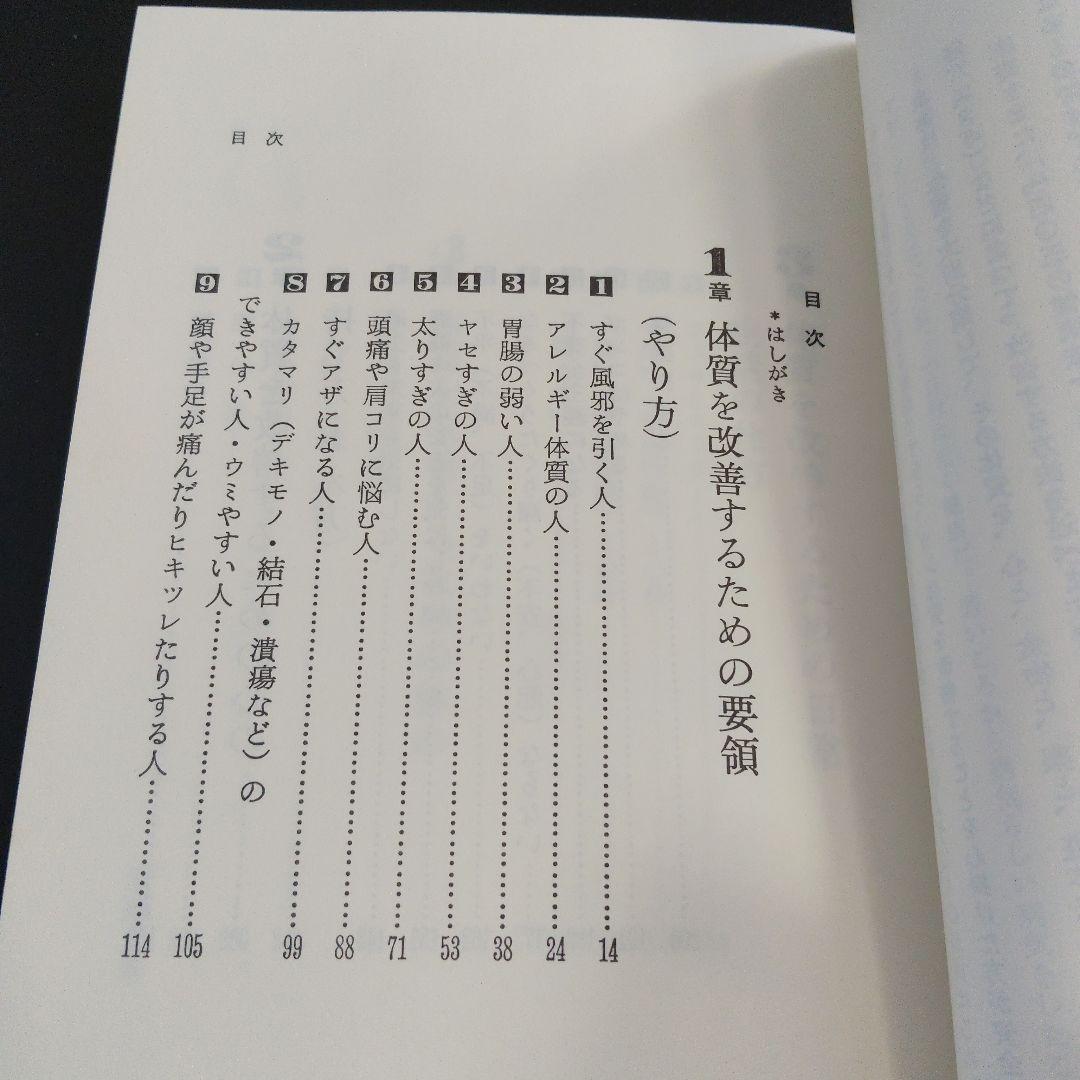 目次
目次
*はしがき
1章 体質を改善するための要領
(やり方)
1 すぐ風邪を引く人……14
2 アレルギー体質の人……24
3 胃腸の弱い人……38
4 ヤセすぎの人……53
5 太りすぎの人……71
6 頭痛や肩コリに悩む人……88
7 すぐアザになる人……99
8 カタマリ(デキモノ・結石・潰瘍など)の
できやすい人・ウミやすい人……105
9 顔や手足が痛んだりヒキツレたりする人……114